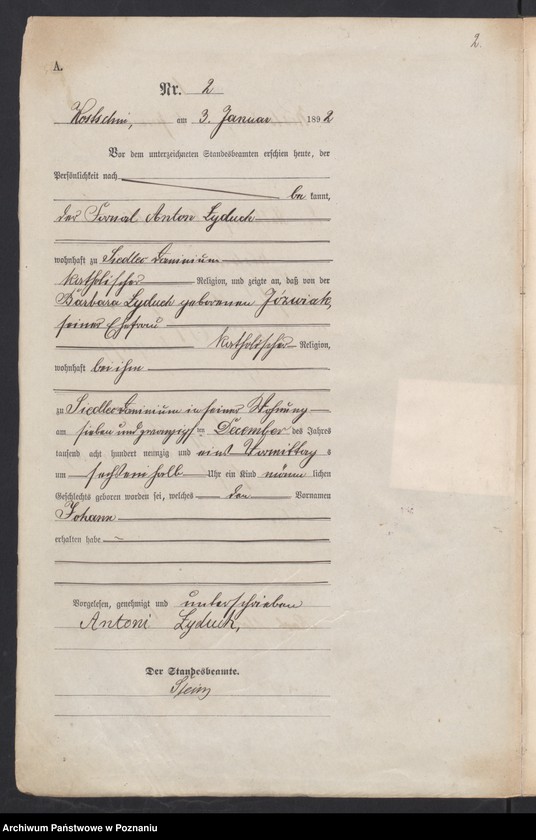 2.
A.
Nr. 2
Kostschin, am 3. Januar 1892
Vor dem unterzeichneten Standesbeamten erschien heute, der
Persönlichkeit nach
be kannt,
der Fornal Anton Lyduch
wohnhaft zu Siedlec Dominium
katholischer Religion, und zeigte an, daß von der
Barbara Lyduch geborenen Józwiak,
seiner Ehefrau
katholischer Religion,
wohnhaft bei ihm
zu Siedlec Dominium in seiner Wohnung
am sieben und zwanzigsten December des Jahres
tausend acht hundert neunzig und eins Vormittag s
um sechseinhalb Uhr ein Kind männ lichen
Geschlechts geboren worden sei, welches den Vornamen
Johann
erhalten habe
Vorgelesen, genehmigt und unterschrieben
Antoni Lyduch,
Der Standesbeamte.
Archiwum Państwowe w Poznaniu